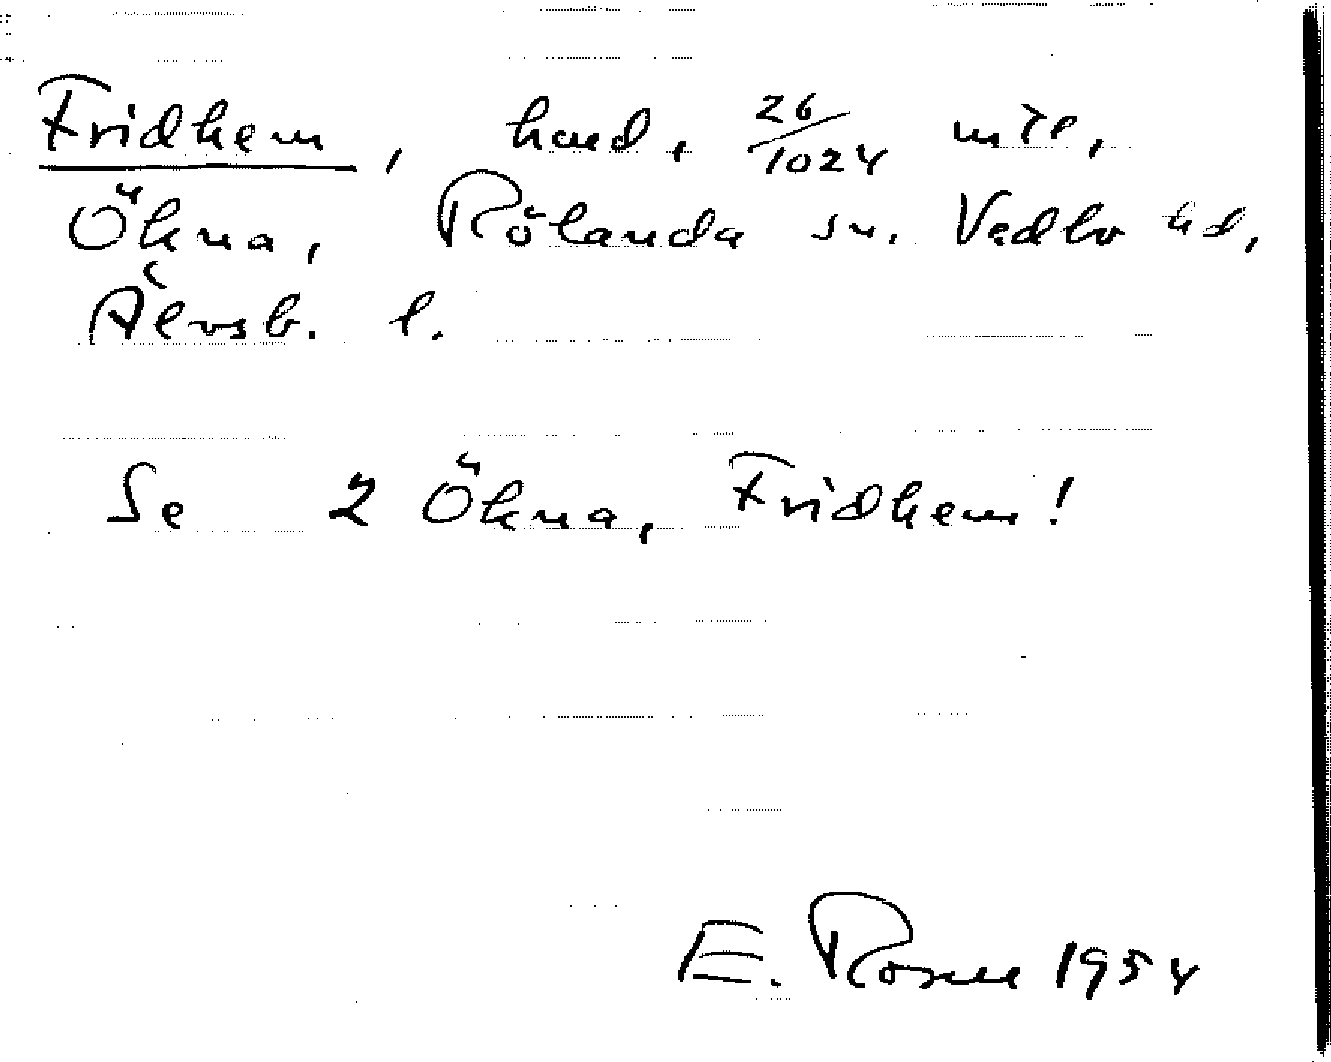 Fridhem, hmd, 26/1024 mtl,
Ökna, Rölanda sn. Vedbo hd,
Älvsb. l.
Se 2 Ökna, Fridhem!
E. Rosell 1954